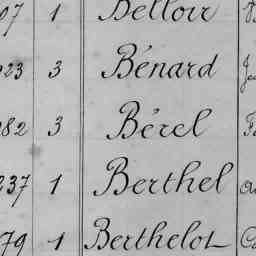 07 1 Belloir
023 3 Bénard
082 3 Bérel
237 1 Berthel
79 1 Berthelot